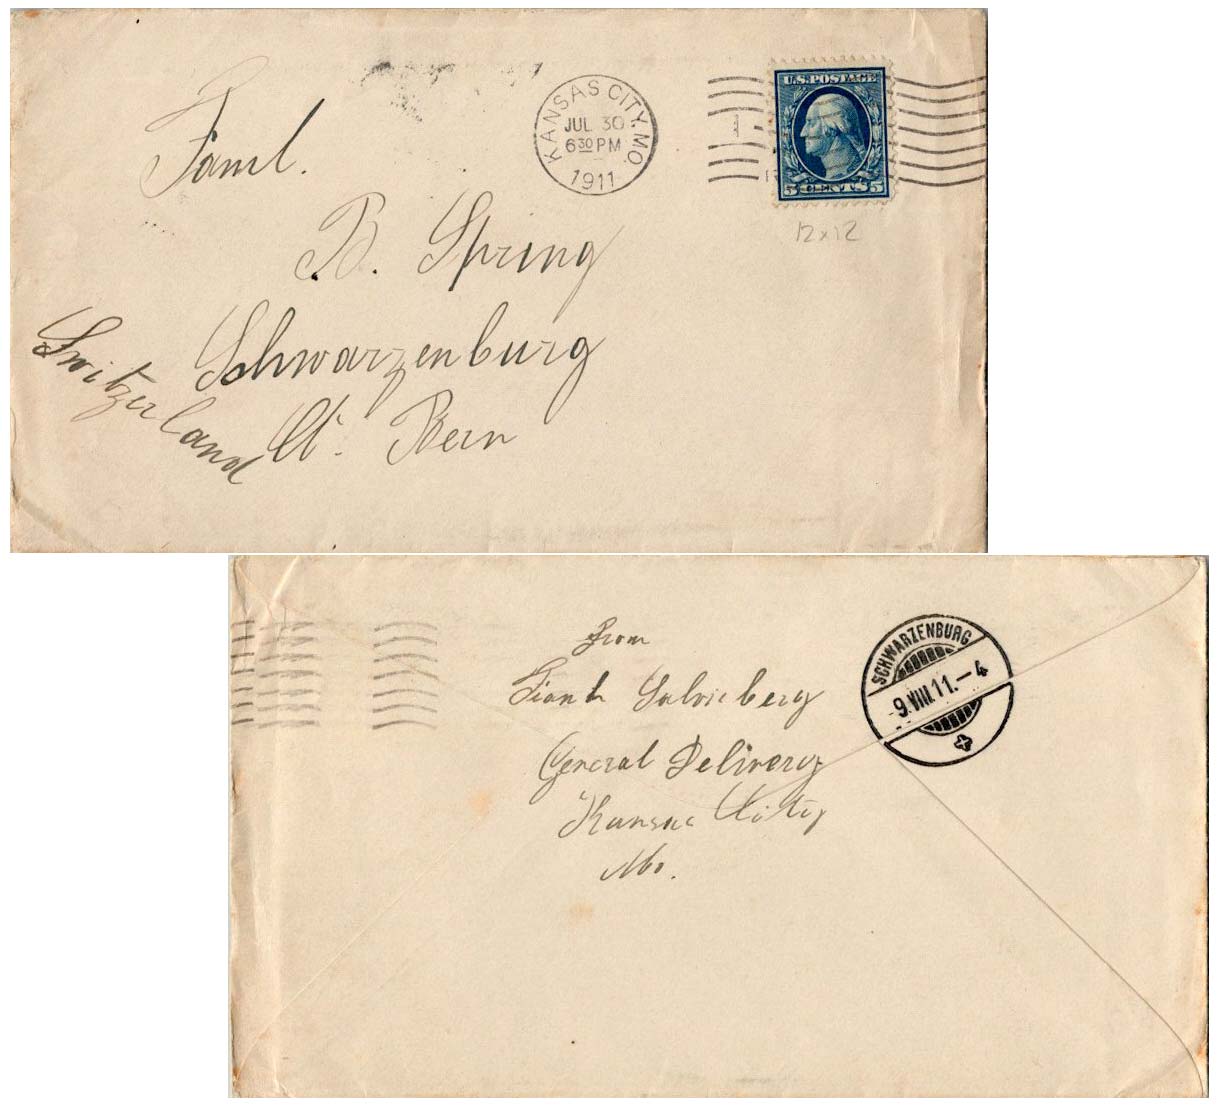 KANSAS CITY, MO.
JUL 30
6 30 PM
1911
U.S. POSTAGE
5 CENTS 5
12x12
Faml.
B. Spring
Schwarzenburg
Ct. Bern
Switzerland
From
Frank
General Delivery
Kansas City
Mo.
SCHWARZENBURG
9.VIII.11.-4